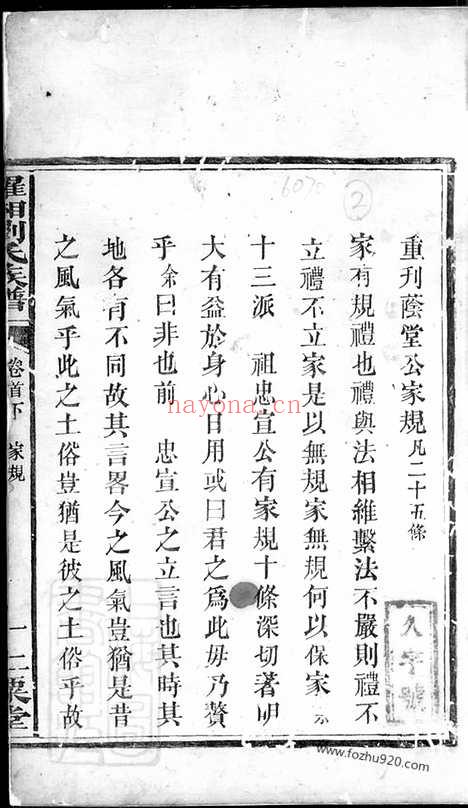 重刊蔭堂公家規凡二十五條
家有規禮也禮與法相維繫法不嚴則禮不
立禮不立家是以無規家無規何以保家
十三派 祖忠宣公有家規十條深切著明
大有益於身心日用或曰君之爲此毋乃贅
乎余曰非也前 忠宣公之立言也其時其
地各有不同故其言畧今之風氣豈猶是昔
之風氣乎此之土俗豈猶是彼之土俗乎故
湘劉氏族譜
卷首下 家規
一
久字號
6070
2
nayona.cn
www.fozhu920.com